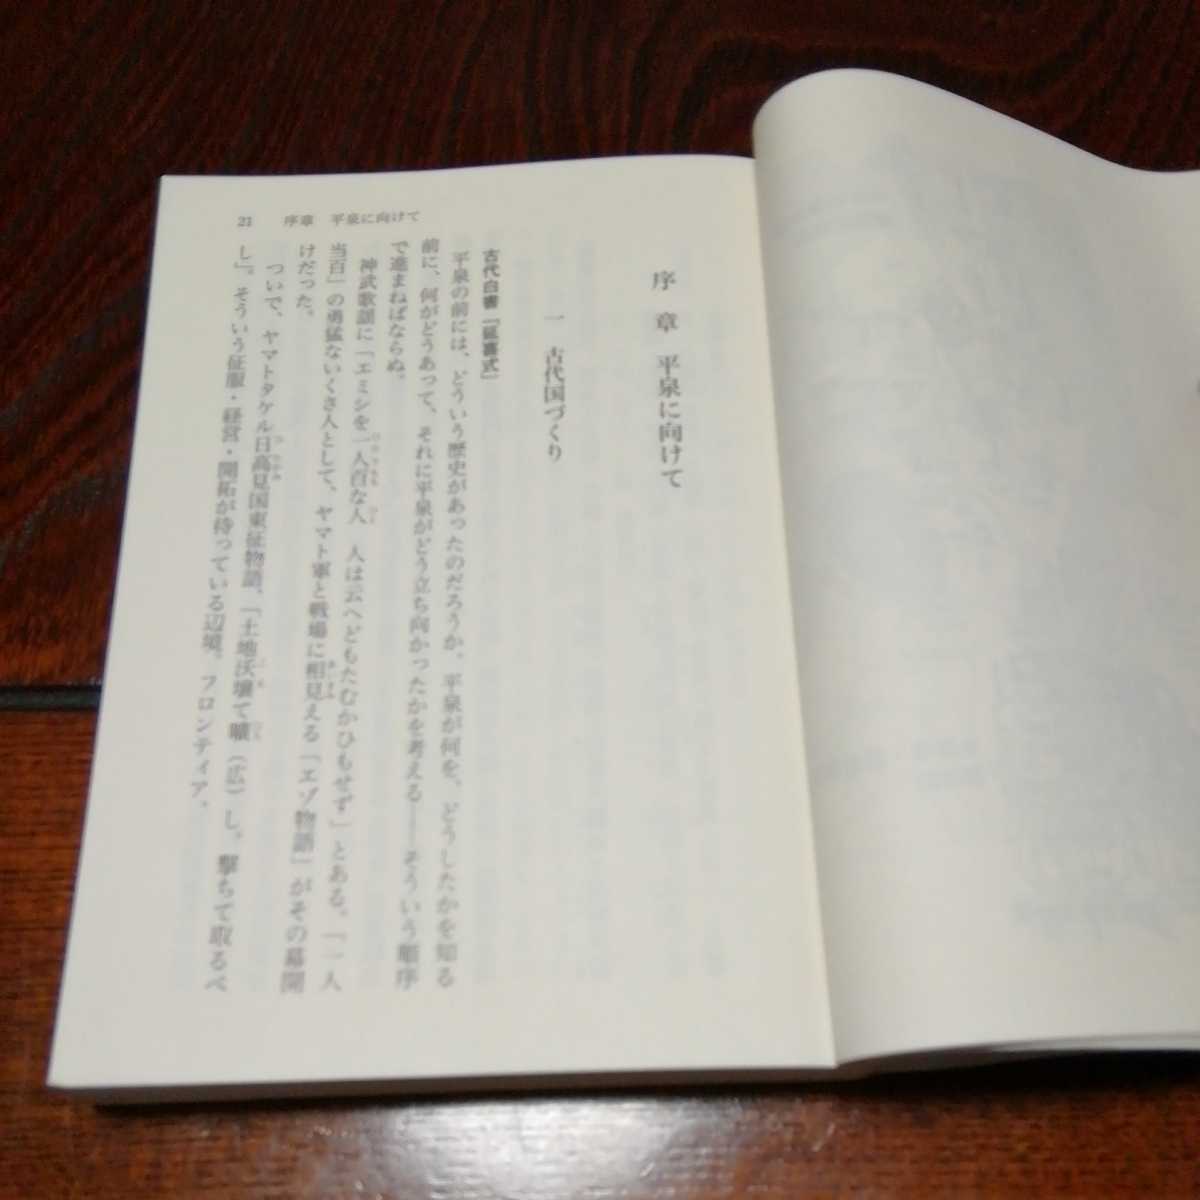 21 序章 平泉に向けて
序章 平泉に向けて
一 古代国づくり
古代白書「延喜式」
平泉の前には、どういう歴史があったのだろうか。平泉が何を、どうしたかを知る
前に、何がどうあって、それに平泉がどう立ち向かったかを考える――そういう順序
で進まねばならぬ。
神武歌謡に「エミシを一人百な人 人は云へどもたむかひもせず」とある。「一人
当百」の勇猛ないくさ人として、ヤマト軍と戦場に相見える「エゾ物語」がその幕開
けだった。
ついで、ヤマトタケル日高見国東征物語。「土地沃壌て曠（広）し。撃ちて取るべ
し」。そういう征服・経営・開拓が待っている辺境。フロンティア。